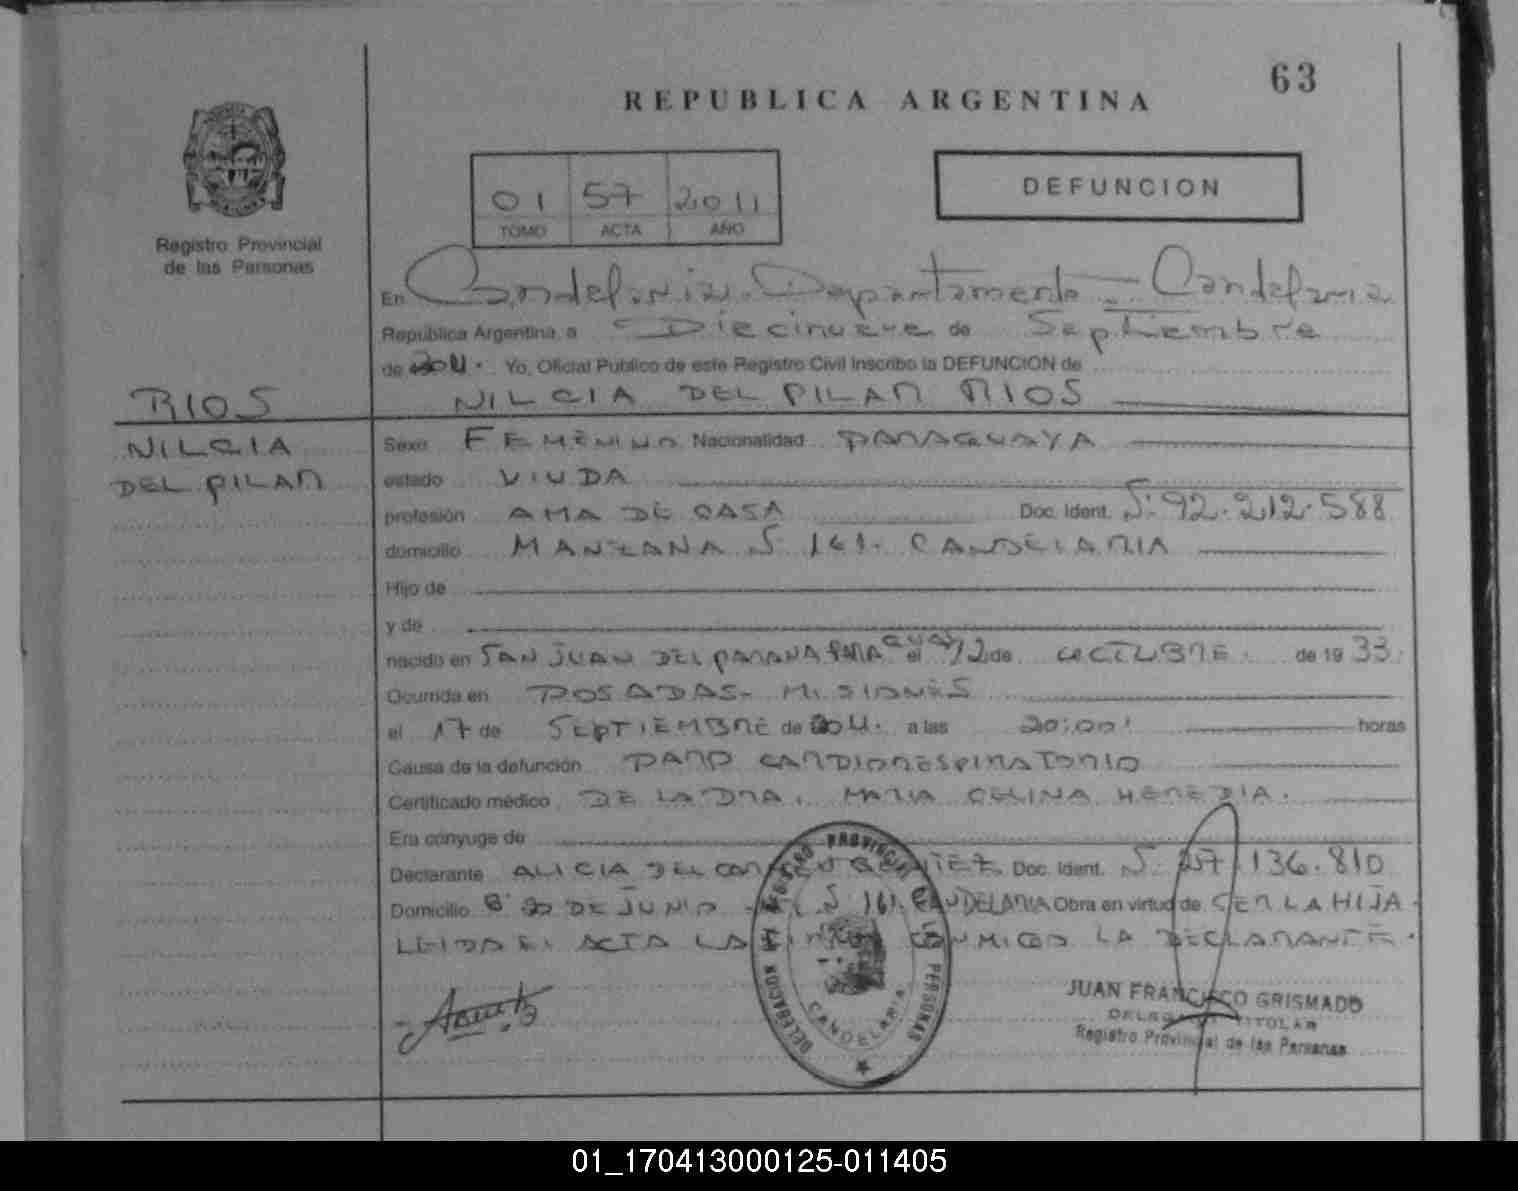 63
REPUBLICA ARGENTINA
01 57 2011
TOMO ACTA AÑO
DEFUNCION
Registro Provincial
de las Personas
En Candelaria. Departamento - Candelaria
República Argentina, a Diecinueve de Septiembre
de 2011. Yo, Oficial Publico de este Registro Civil Inscribo la DEFUNCION de
RIOS
NILCIA DEL PILAR RIOS
NILCIA
DEL PILAR
Sexo FEMENINO Nacionalidad PARAGUAYA
estado VIUDA
profesión AMA DE CASA Doc. Ident. N: 92.212.588
domicilio MANZANA N 161. CANDELARIA
Hijo de
y de
nacido en SAN JUAN DEL PARANA PARAGUAY el 12 de OCTUBRE. de 19 33.
Ocurrida en POSADAS- MISIONES
el 17 de SEPTIEMBRE de 2011. a las 20:00! horas
Causa de la defunción PARO CARDIORESPIRATORIO
Certificado médico DE LA DRA. MARIA CELINA HEREDIA.
Era cónyuge de
Declarante ALICIA DEL CARMEN BENITEZ Doc. Ident. N: 27.136.810
Domicilio Bº 20 DE JUNIO N 161. CANDELARIA Obra en virtud de SER LA HIJA.
LEIDA EL ACTA LA CONMIGO LA DECLARANTE.
DELEGACION REGISTRO PROVINCIAL DE LAS PERSONAS
CANDELARIA
JUAN FRANCISCO GRISMADO
DELEGADO TITULAR
Registro Provincial de las Personas
01_170413000125-011405